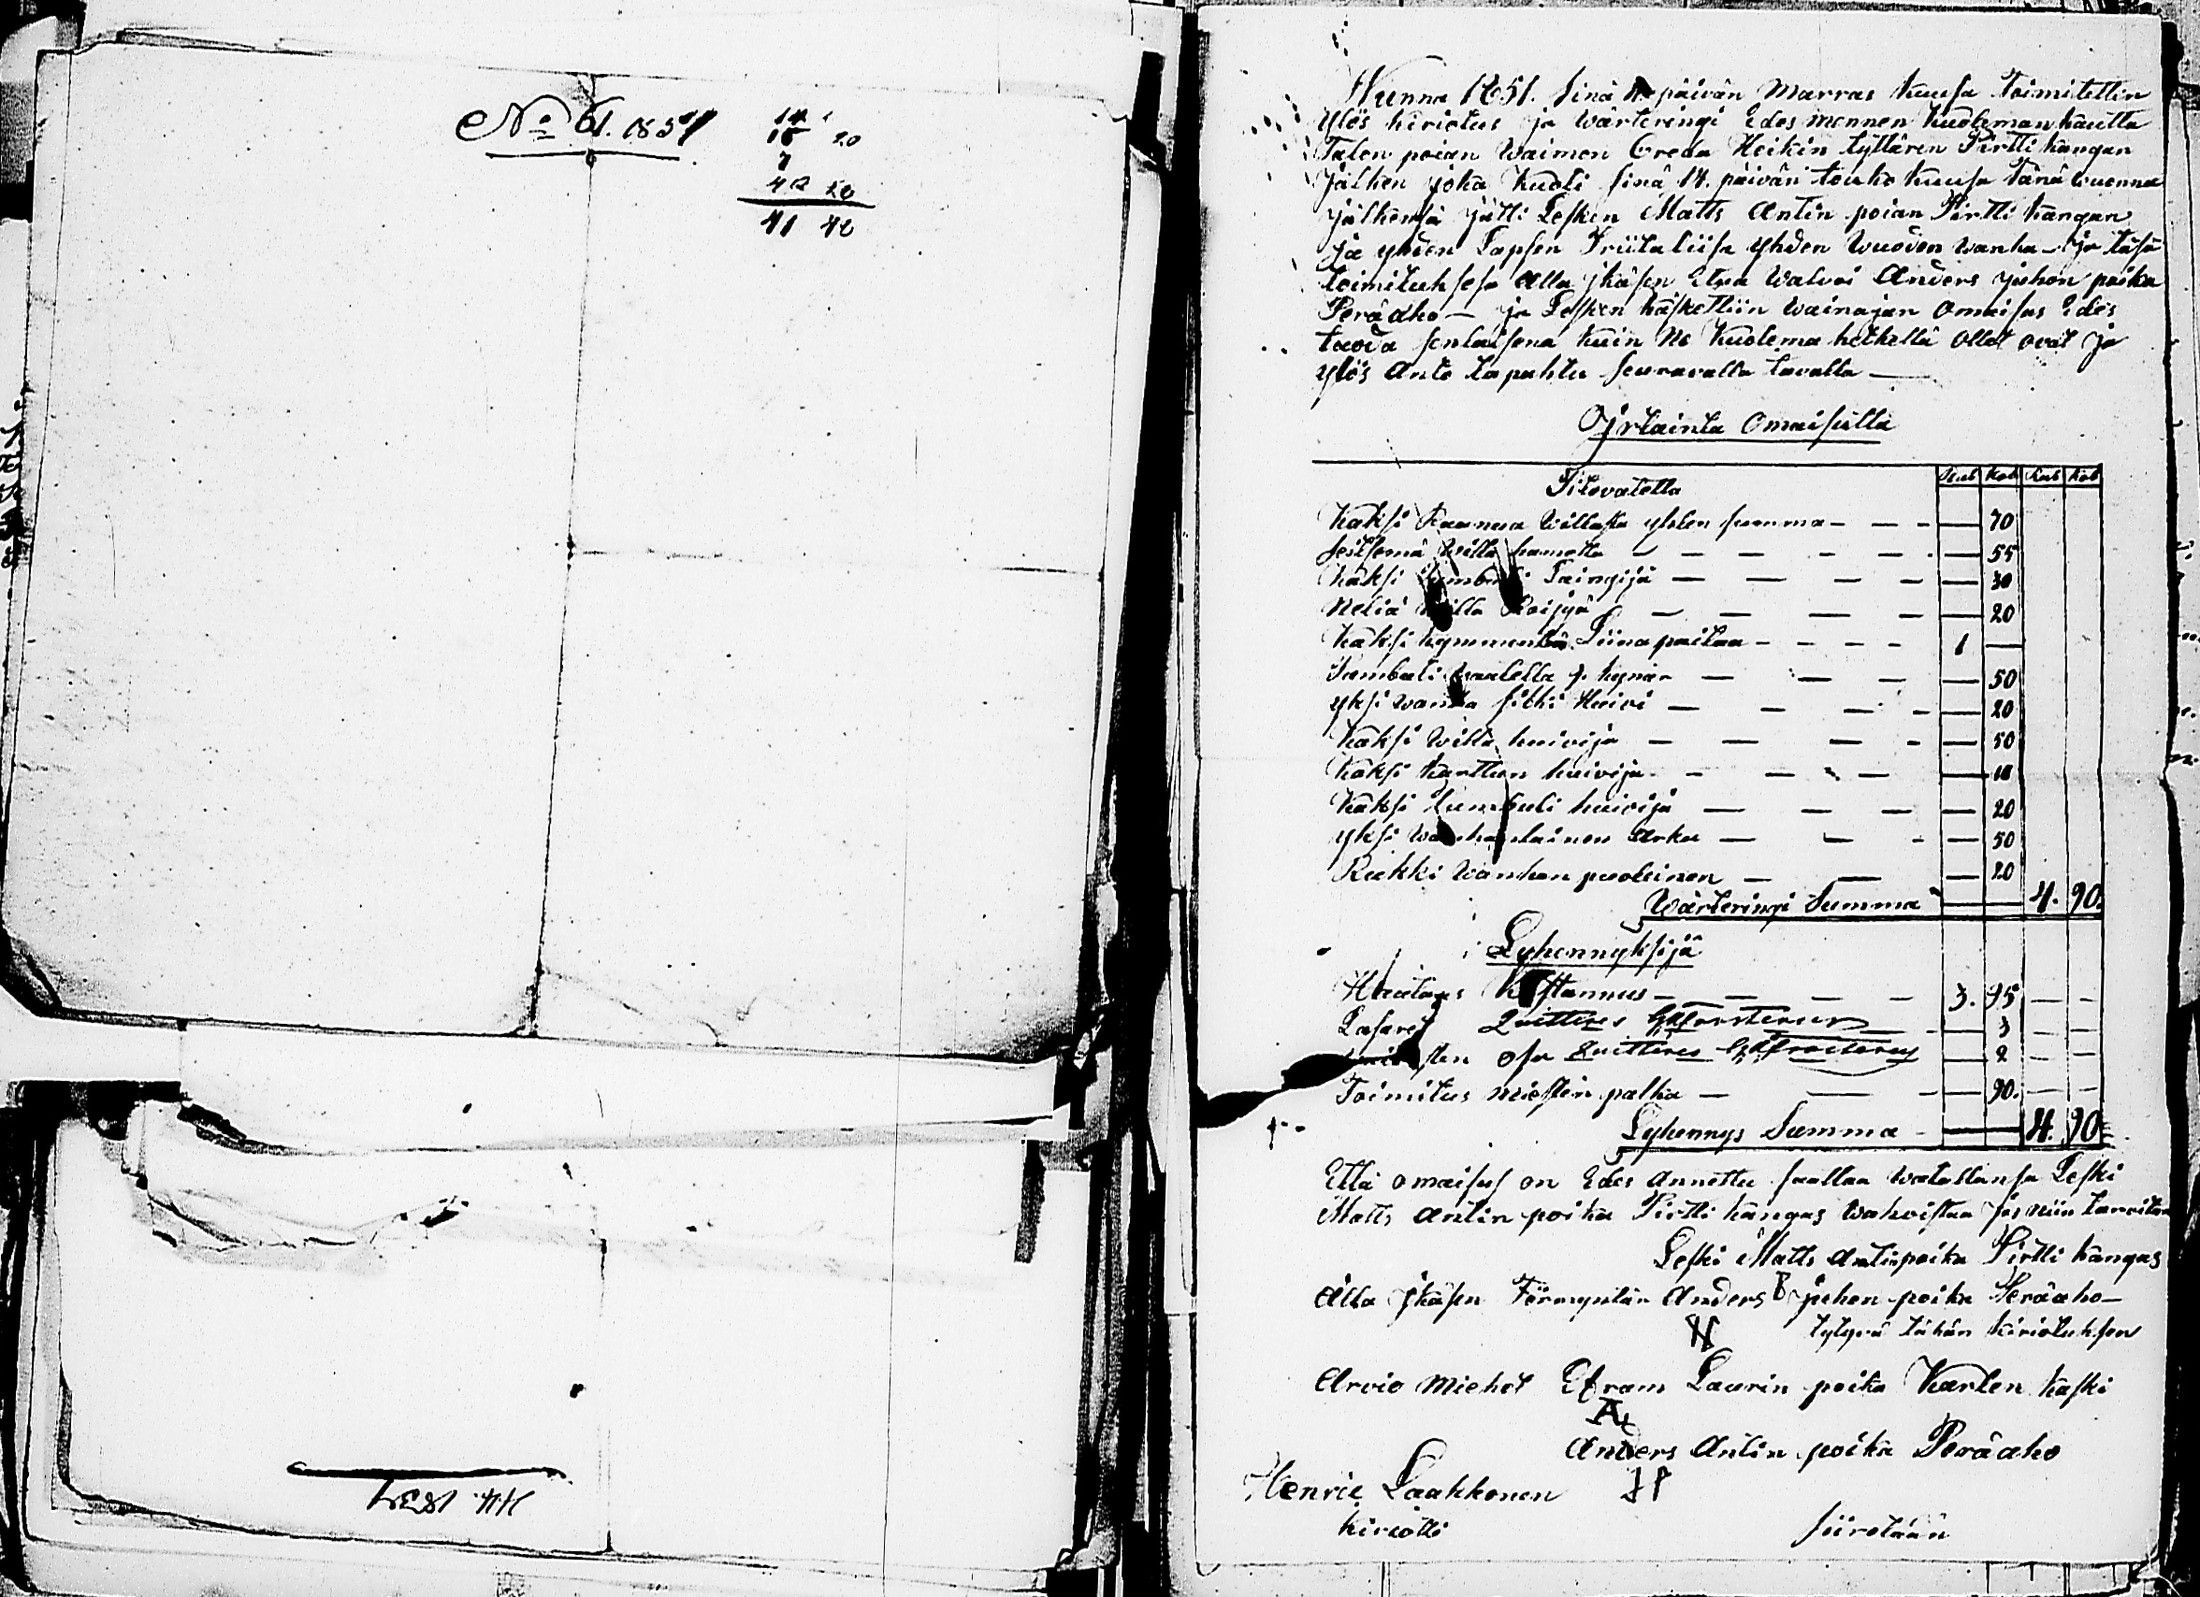 No 61. 1851
20
7
41 40
Wunna 1851. sinä päivän Marras kuusa toimitettin
ylös kiriotus ja wärteringi Edes mennen kuoleman kautta
Talon poian Waimon Greda Heikin tyttären Pirttikangan
jälken joka kuoli sinä 14. päivän touko kuusa tänä wuonna
jälkensä jätti Lesken Matts Antin poian Pirtti kangan
ja yhden Lapsen Friitaliisa yhden wuoden wanha - ja täsä
toimituksesa alla jkäsen Etua walvoi Anders juhon poika
Peräaho - ja Lesken käskettiin wainajan omaisus Edes
tuoda senlaisena kuin ne kuolema hetkellä ollet ovat ja
ylös anto tapahtu seuravalla tavalla
Irtainta omaisutta
Rub Kob Rub Kob
Pitovatetta
Kaksi Willasta yhten summa 70
seitsemä willa hametta 55
kaksi Tumbuli Taingijä 30
neliä willa Roijyä 20
kaksi kymmentä Liina paitaa 1
Tumbuli waatetta 9. kynär 50
yksi wanha silki Huivi 20
kaksi willa huivija 50
kaksi karttun huivija
kaksi tumbuli huivija 20
yksi wanhanlainen Arku 50
Rukki wanhan puoleinen 20
Wärteringi Summa 4. 90.
Lyhennyksijä
Hautaus Kustannus 3. 95
Lasaret Quitteras 3
osa Quitteras 2
Toimitus miesten palka 90.
Lyhennys Summa 4. 90
Että omaisus on Edes annettu saallaa watallansa Leski
Matts Antin poika Pirtti kangas wahvistaa jos niin tarvitan
Leski Matts Antinpoika Pirtti kangas
Alla jkäsen Förmyntär Anders juhon poika Peräaho
tytyvä tähän kiriotuksen
Arvio miehet Efram Laurin poika Karten kaski
Anders Antin poika Peräaho
Henric Laakkonen
kiriotti
siiretään